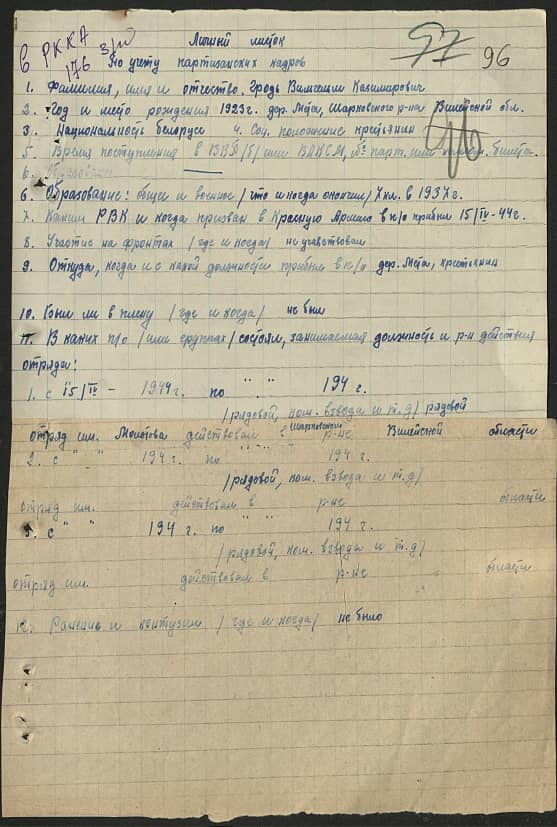 в РККА
176 з/по
97 96
Личный листок
По учету партизанских кадров
1. Фамилия, имя и отчество. Гродь Вильгельм Казимирович
2. Год и место рождения 1923 г. дер. Мета, Шарковского р-на Вилейской обл.
3. Национальность белорус 4. Соц. положение крестьянин
5. Время поступления в ВКП/б/ или ВЛКСМ, № парт. или комсом. билета.
6. Образование: общее и военное /что и когда окончил/ 7 кл. в 1937 г.
7. Каким РВК и когда призван в Красную Армию в п/о прибыл 15/IV-44г.
8. Участие на фронтах /где и когда/ не участвовал
9. Откуда, когда и с какой должности прибыл в п/о дер. Мета, крестьянин
10. Был ли в плену /где и когда/ не был
11. В каких п/о /или группах/ состоял, занимаемая должность и р-н действия
отряда:
1. с "15/IV - 1944 г. по " " 194 г.
/рядовой, ком. взвода и т.д/ рядовой
отряд им. Молотова действовал в Шарковском р-не Вилейской области
2. с " " 194 г. по " " 194 г.
/рядовой, ком. взвода и т.д/
отряд им. действовал в р-не области
3. с " " 194 г. по " " 194 г.
/рядовой, ком. взвода и т.д/
отряд им. действовал в р-не области
12. Ранение и контузии /где и когда/ не было